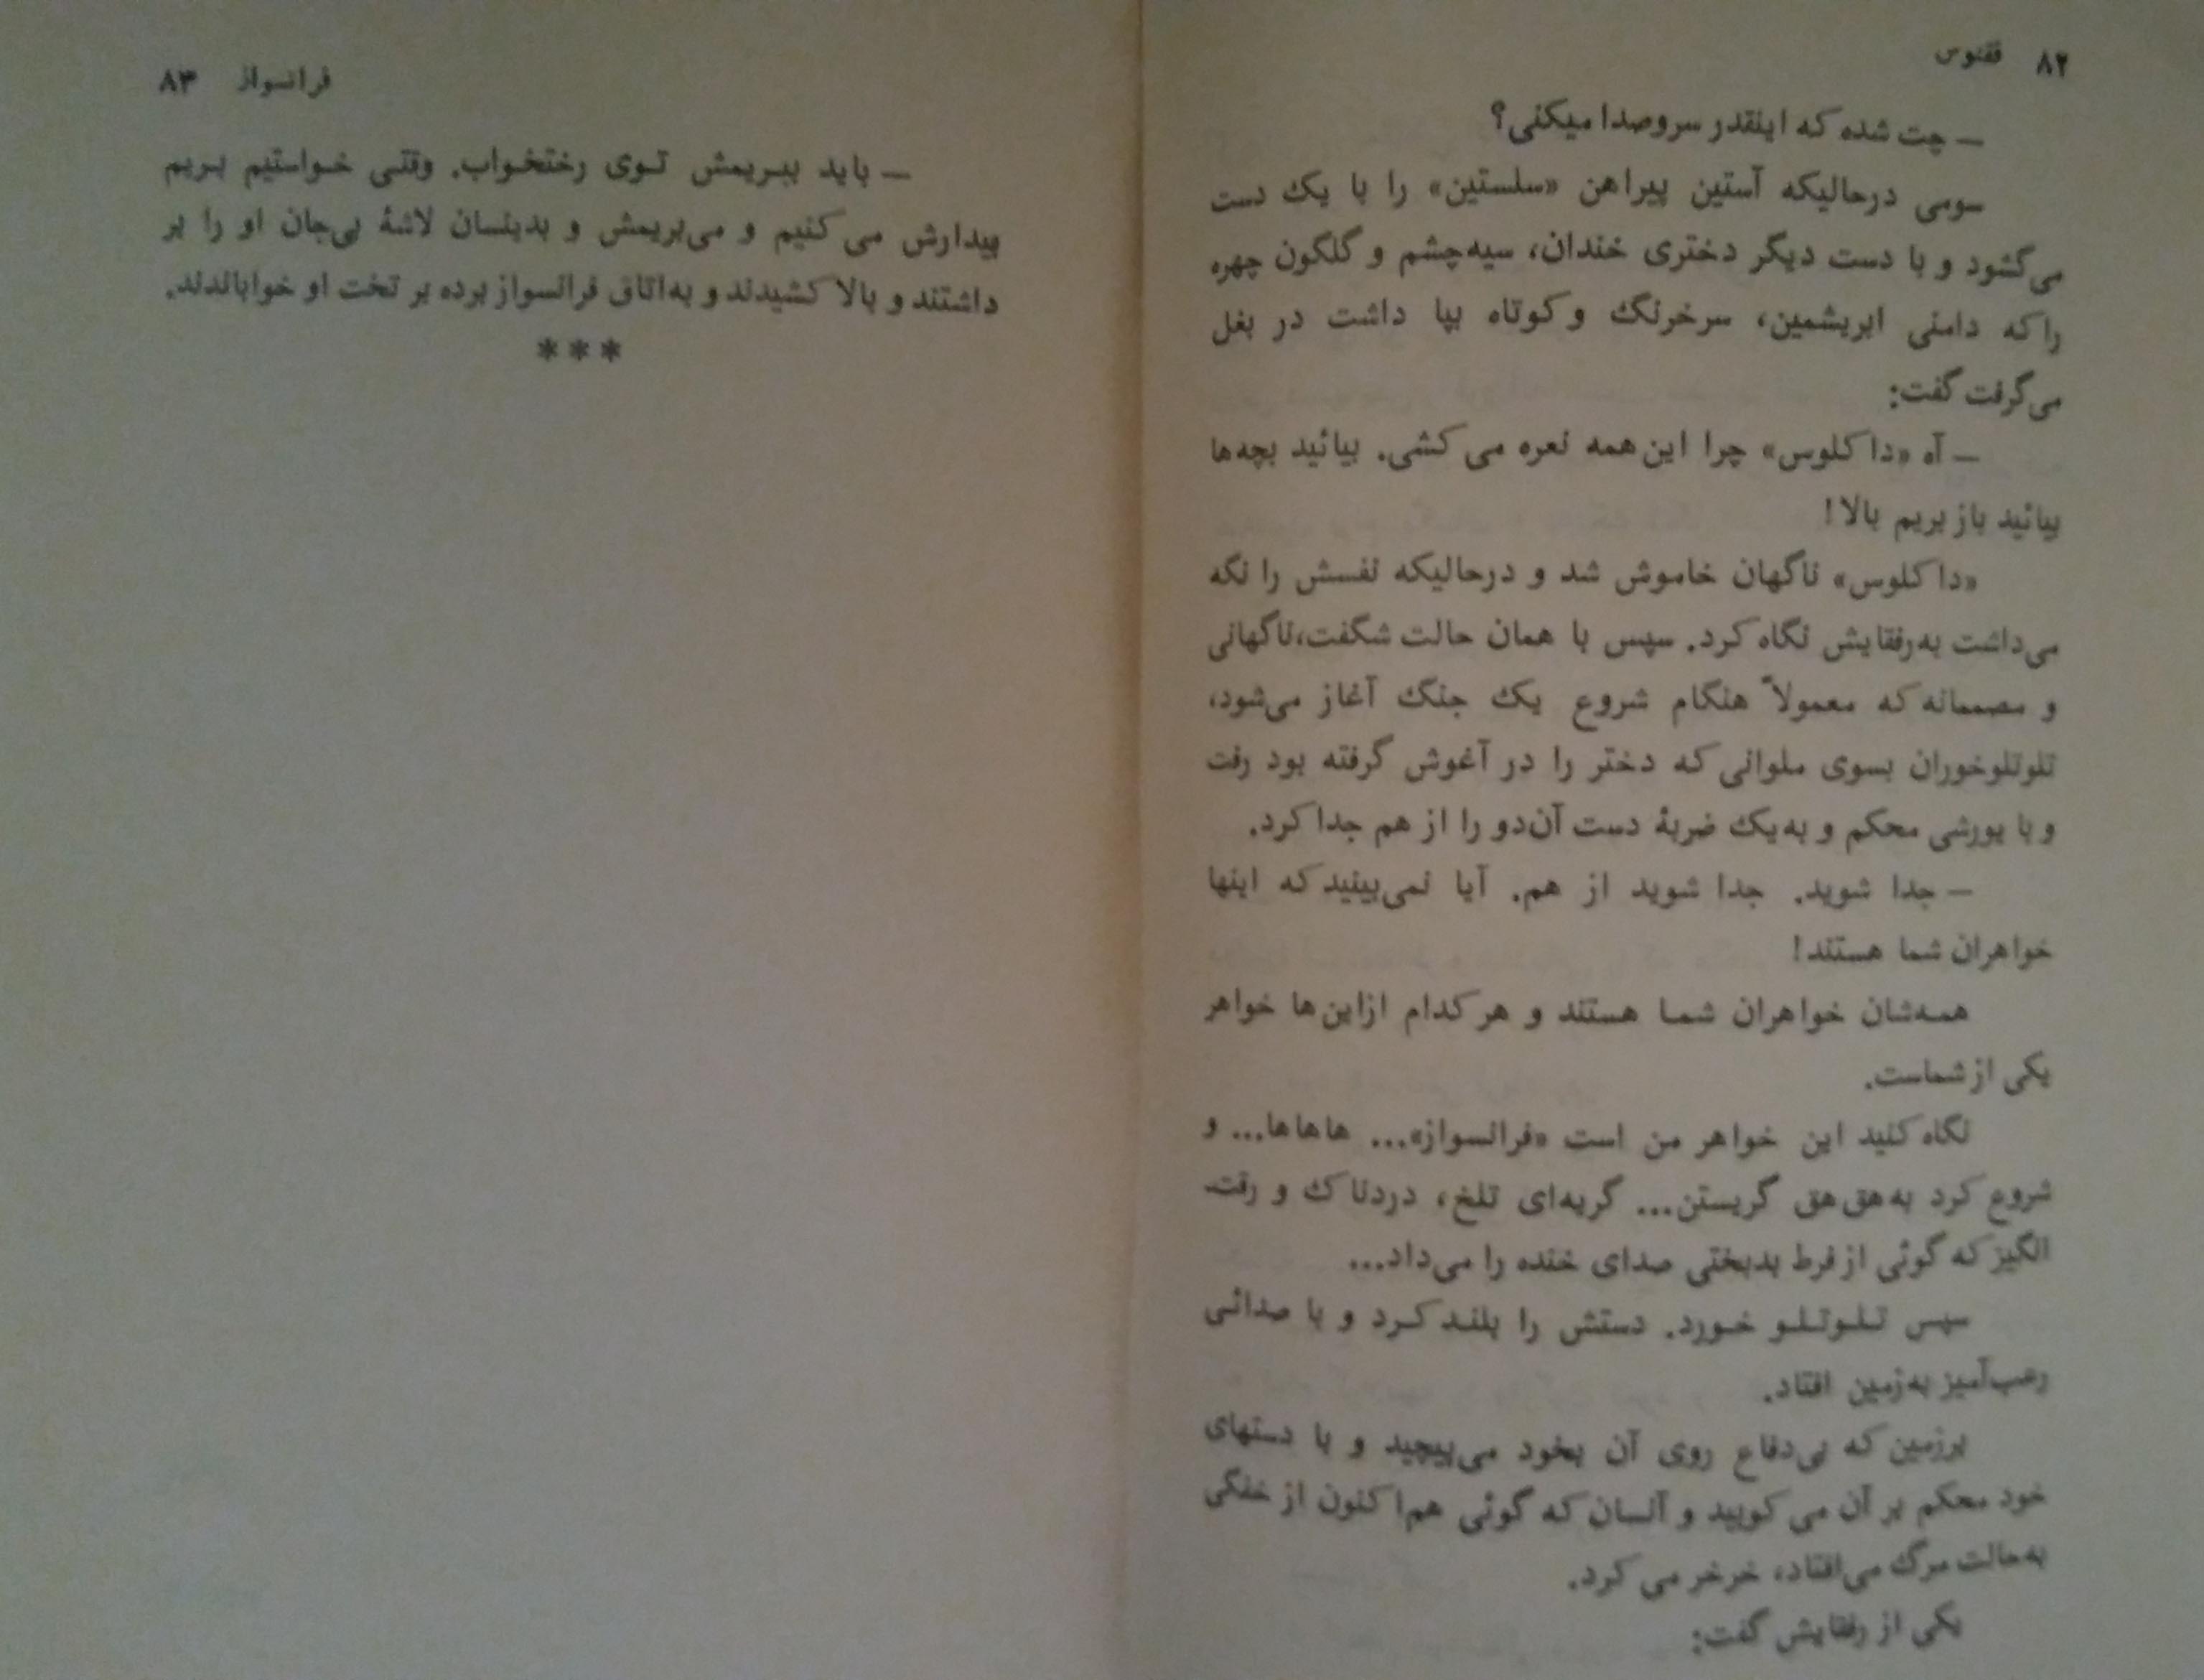 ۸۲ ققنوس
— چت شده که اینقدر سروصدا میکنی؟
سومی درحالیکه آستین پیراهن «سلستین» را با یک دست
می‌گشود و با دست دیگر دختری خندان، سیه‌چشم و گلگون چهره
را که دامنی ابریشمین، سرخرنگ و کوتاه بپا داشت در بغل
می‌گرفت گفت:
— آه «داکلوس» چرا این همه نعره می‌کشی. بیائید بچه‌ها
بیائید باز بریم بالا!
«داکلوس» ناگهان خاموش شد و درحالیکه نفسش را نگه
می‌داشت به‌رفقایش نگاه کرد. سپس با همان حالت شگفت،ناگهانی
و مصممانه که معمولاً هنگام شروع یک جنگ آغاز می‌شود،
تلوتلوخوران بسوی ملوانی که دختر را در آغوش گرفته بود رفت
و با یورشی محکم و به‌یک ضربهٔ دست آن‌دو را از هم جدا کرد.
— جدا شوید. جدا شوید از هم. آیا نمی‌بینید که اینها
خواهران شما هستند!
همه‌شان خواهران شما هستند و هرکدام ازاین‌ها خواهر
یکی از شماست.
نگاه کنید این خواهر من است «فرانسواز»... هاهاها... و
شروع کرد به‌هق‌هق گریستن... گریه‌ای تلخ، دردناک و رقت
انگیز که گوئی از فرط بدبختی صدای خنده را می‌داد...
سپس تلوتلو خورد. دستش را بلند کرد و با صدائی
رعب‌آمیز به‌زمین افتاد.
برزمین که بی‌دفاع روی آن بخود می‌پیچید و با دستهای
خود محکم بر آن می‌کوبید و آنسان که گوئی هم‌اکنون از خفگی
به‌حالت مرگ می‌افتاد، خرخر می‌کرد.
یکی از رفقایش گفت:
فرانسواز ۸۳
— باید ببریمش توی رختخواب. وقتی خواستیم بریم
بیدارش می‌کنیم و می‌بریمش و بدینسان لاشهٔ بی‌جان او را بر
داشتند و بالا کشیدند و به‌اتاق فرانسواز برده بر تخت او خواباندند.
***